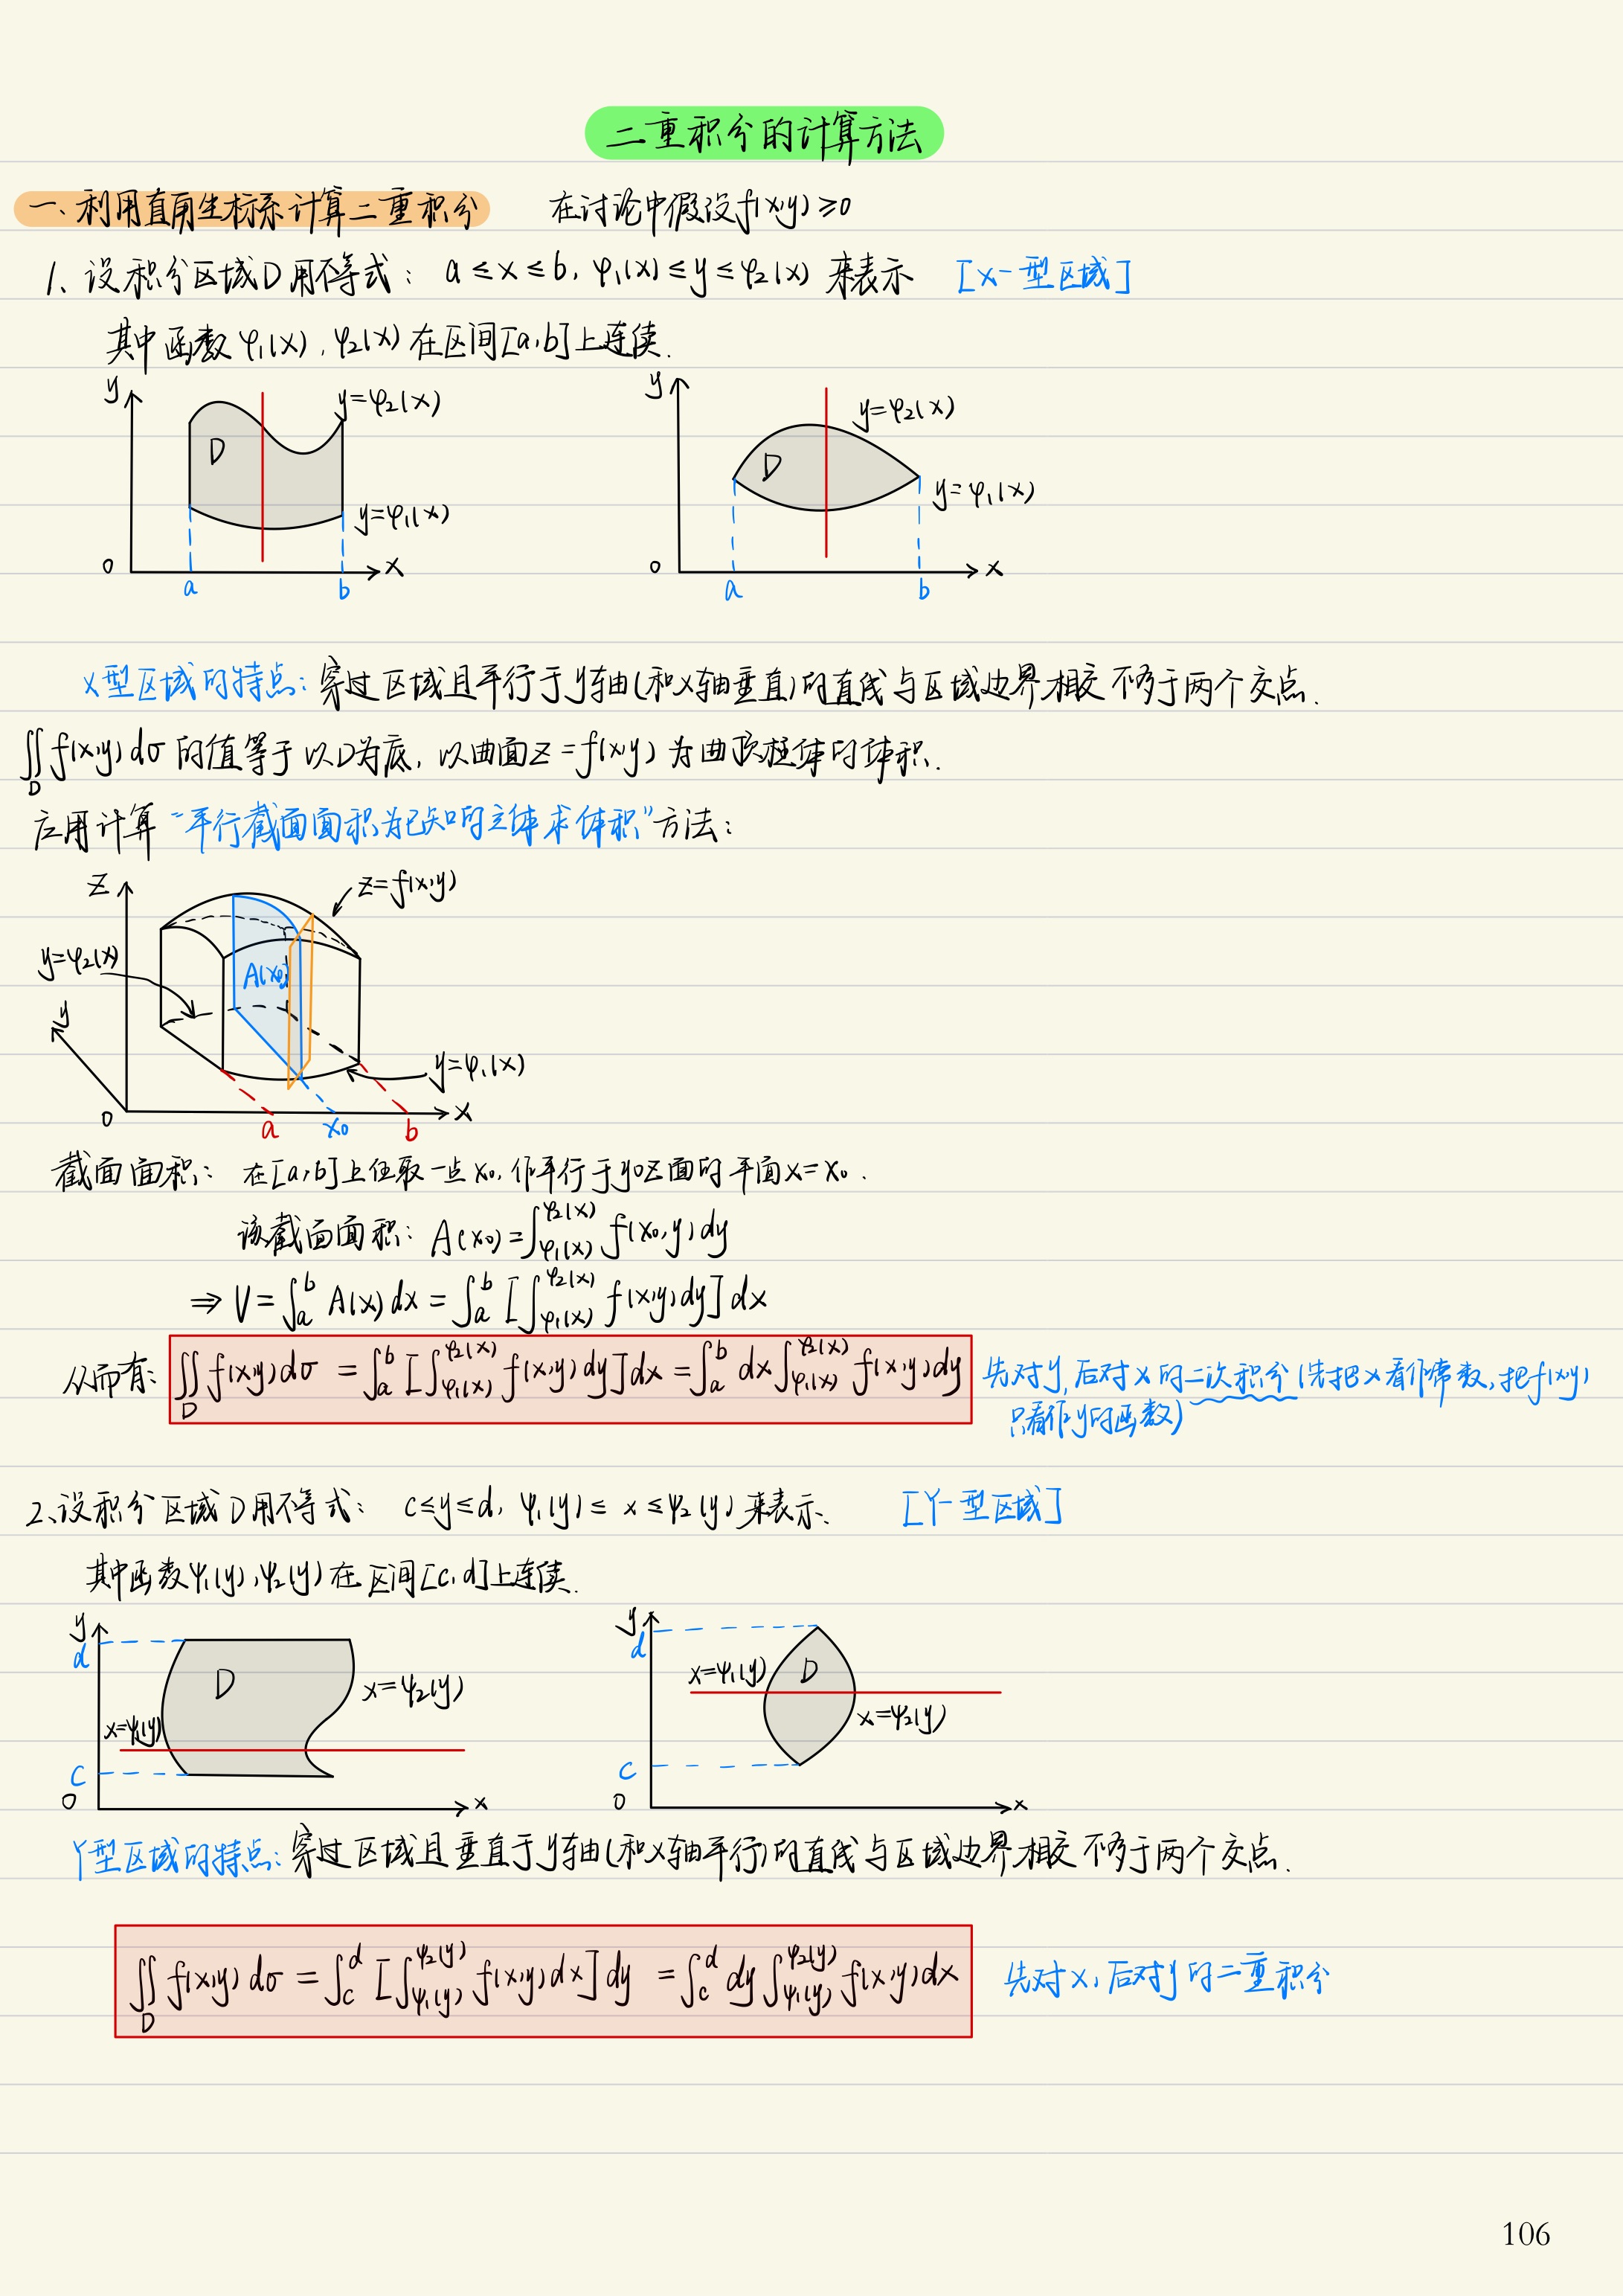 二重积分的计算方法
一、利用直角坐标系计算二重积分 在讨论中假设f(x,y)≥0
1、设积分区域D用不等式: a≤x≤b, φ₁(x)≤y≤φ₂(x) 来表示 [X-型区域]
其中函数φ₁(x), φ₂(x)在区间[a,b]上连续.
y y=φ₂(x) D y=φ₁(x) 0 a b x
y y=φ₂(x) D y=φ₁(x) 0 a b x
X型区域的特点: 穿过区域且平行于y轴(和x轴垂直)的直线与区域边界相交不多于两个交点.
∬_D f(x,y)dσ 的值等于以D为底, 以曲面z=f(x,y)为曲顶柱体的体积.
应用计算“平行截面面积为已知的立体求体积”方法:
z z=f(x,y)
y=φ₂(x) A(x₀)
y
y=φ₁(x)
0 x
a x₀ b
截面面积: 在[a,b]上任取一点x₀, 作平行于yoz面的平面x=x₀.
该截面面积: A(x₀)=∫_{φ₁(x)}^{φ₂(x)} f(x₀,y)dy
⇒ V=∫_a^b A(x)dx=∫_a^b [∫_{φ₁(x)}^{φ₂(x)} f(x,y)dy]dx
从而有: ∬_D f(x,y)dσ =∫_a^b [∫_{φ₁(x)}^{φ₂(x)} f(x,y)dy]dx=∫_a^b dx∫_{φ₁(x)}^{φ₂(x)} f(x,y)dy 先对y, 后对x的二次积分(先把x看作常数, 把f(x,y)
只看作y的函数)
2、设积分区域D用不等式: c≤y≤d, ψ₁(y)≤x≤ψ₂(y)来表示. [Y-型区域]
其中函数ψ₁(y),ψ₂(y)在区间[c,d]上连续.
y d D x=ψ₂(y) x=ψ₁(y) c 0 x
y d x=ψ₁(y) D x=ψ₂(y) c 0 x
Y型区域的特点: 穿过区域且垂直于y轴(和x轴平行)的直线与区域边界相交不多于两个交点.
∬_D f(x,y)dσ =∫_c^d [∫_{ψ₁(y)}^{ψ₂(y)} f(x,y)dx]dy =∫_c^d dy∫_{ψ₁(y)}^{ψ₂(y)} f(x,y)dx 先对x, 后对y的二重积分
106